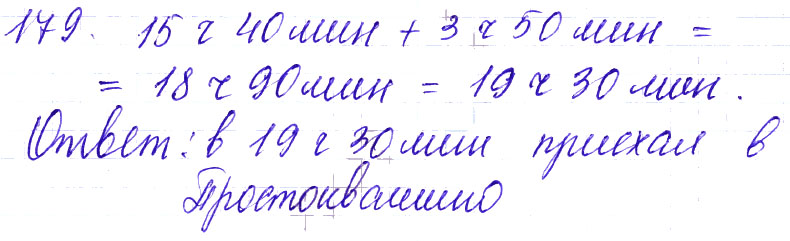 179. 15 ч 40 мин + 3 ч 50 мин =
= 18 ч 90 мин = 19 ч 30 мин.
Ответ: в 19 ч 30 мин приехал в
Простоквашино